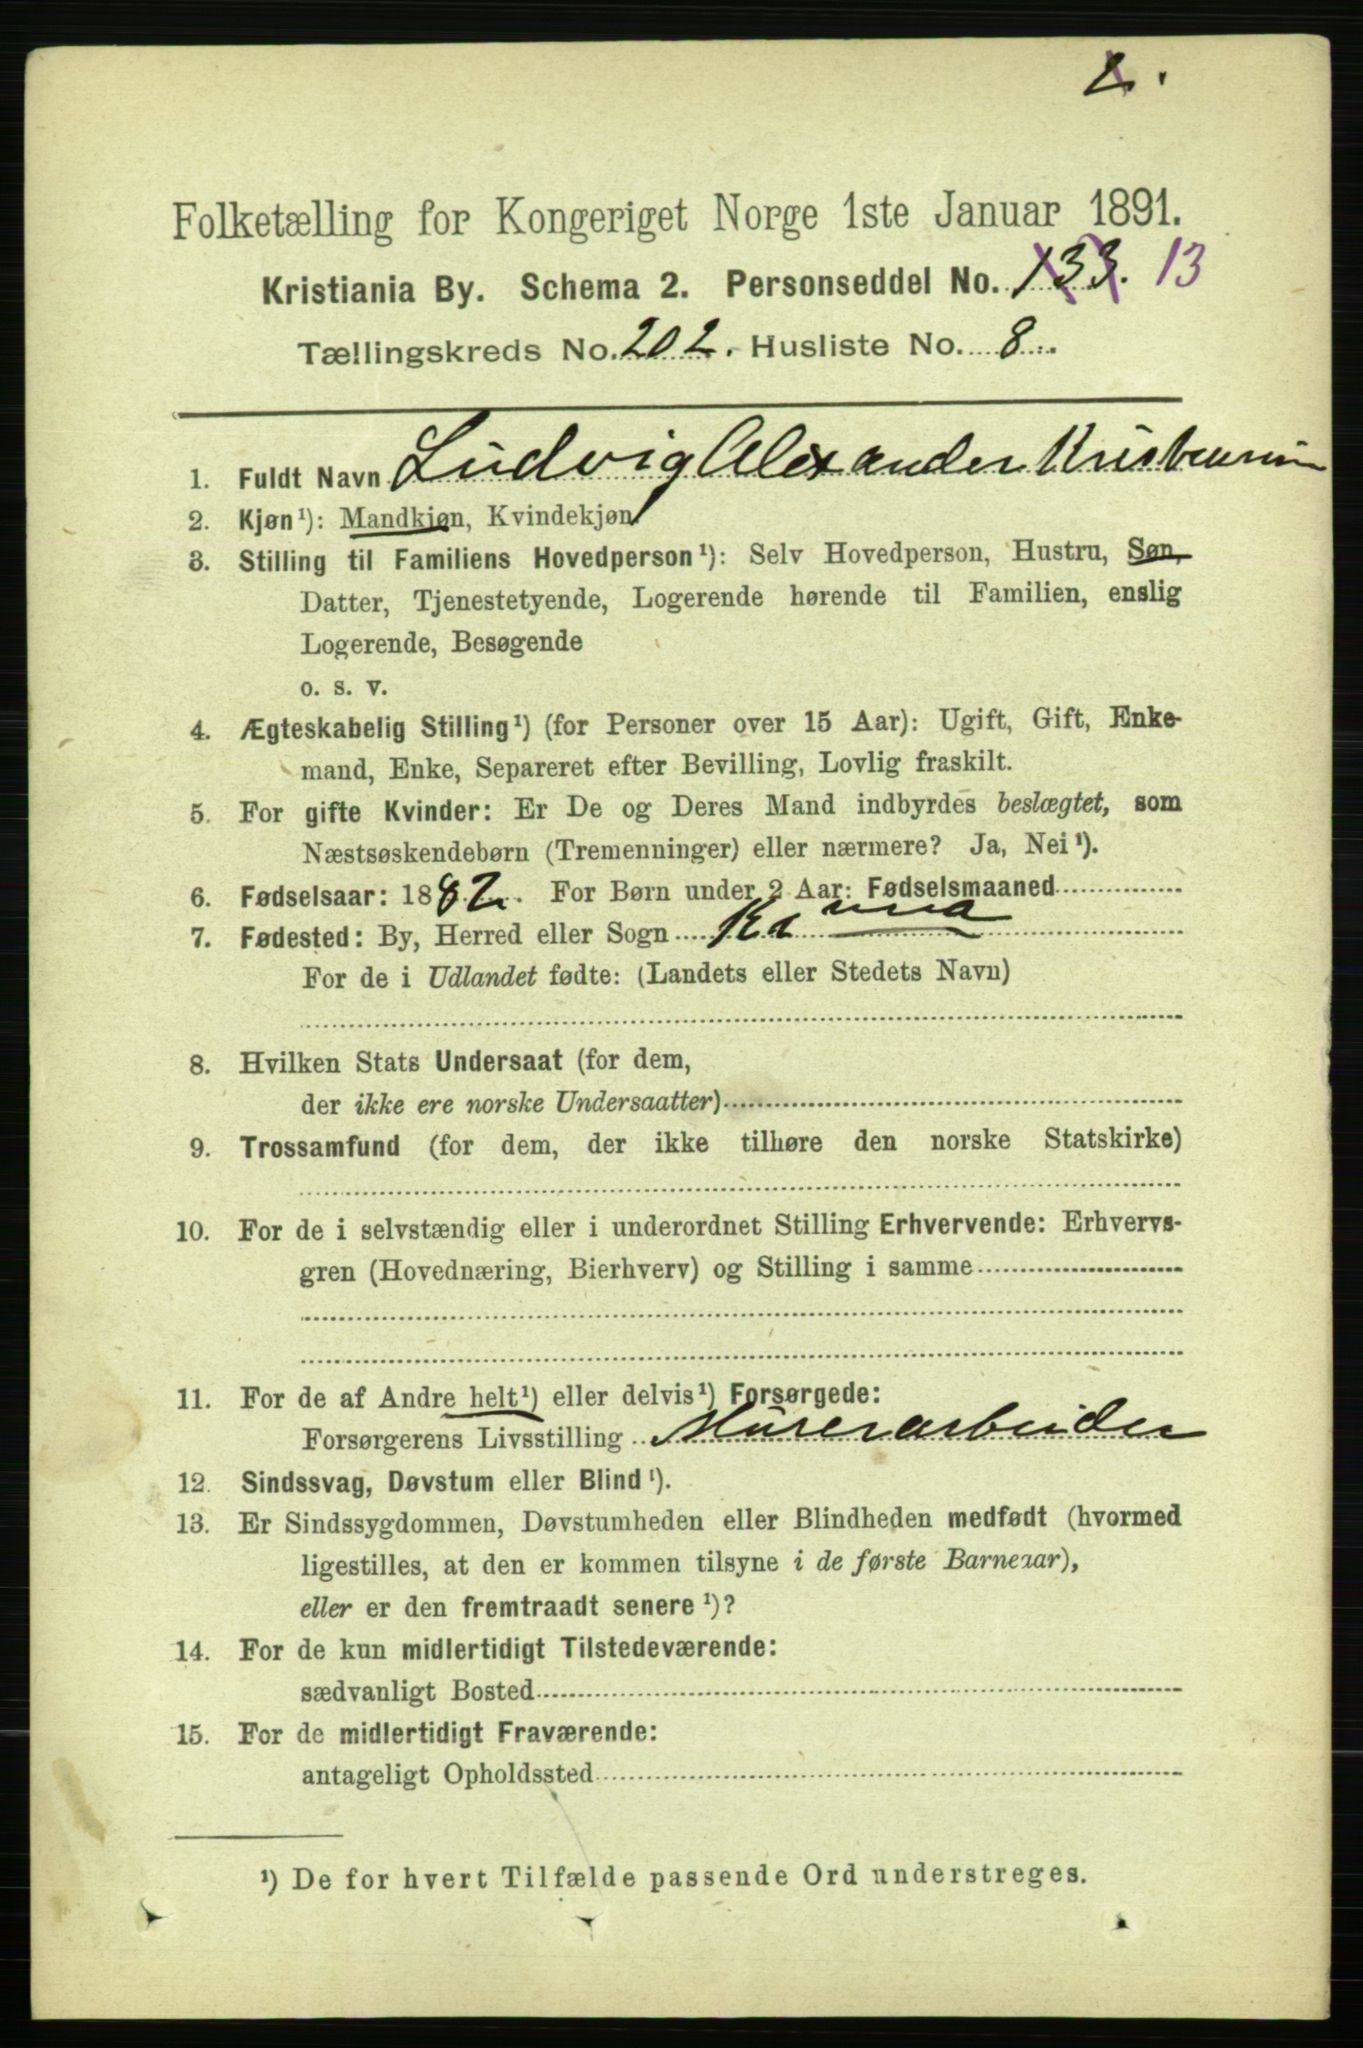 2.
Folketælling for Kongeriget Norge 1ste Januar 1891.
Kristiania By. Schema 2. Personseddel No. 133. 13
Tællingskreds No. 202. Husliste No. 8.
1. Fuldt Navn Ludvig Alexander
2. Kjøn¹): Mandkjøn, Kvindekjøn
3. Stilling til Familiens Hovedperson¹): Selv Hovedperson, Hustru, Søn,
Datter, Tjenestetyende, Logerende hørende til Familien, enslig
Logerende, Besøgende
o. s. v.
4. Ægteskabelig Stilling¹) (for Personer over 15 Aar): Ugift, Gift, Enke-
mand, Enke, Separeret efter Bevilling, Lovlig fraskilt.
5. For gifte Kvinder: Er De og Deres Mand indbyrdes beslægtet, som
Næstsøskendebørn (Tremenninger) eller nærmere? Ja, Nei¹).
6. Fødselsaar: 1882. For Børn under 2 Aar: Fødselsmaaned
7. Fødested: By, Herred eller Sogn Kr ania
For de i Udlandet fødte: (Landets eller Stedets Navn)
8. Hvilken Stats Undersaat (for dem,
der ikke ere norske Undersaatter)
9. Trossamfund (for dem, der ikke tilhøre den norske Statskirke)
10. For de i selvstændig eller i underordnet Stilling Erhvervende: Erhvervs-
gren (Hovednæring, Bierhverv) og Stilling i samme
11. For de af Andre helt¹) eller delvis¹) Forsørgede:
Forsørgerens Livsstilling Murerarbeider
12. Sindssvag, Døvstum eller Blind¹).
13. Er Sindssygdommen, Døvstumheden eller Blindheden medfødt (hvormed
ligestilles, at den er kommen tilsyne i de første Barneaar),
eller er den fremtraadt senere¹)?
14. For de kun midlertidigt Tilstedeværende:
sædvanligt Bosted
15. For de midlertidigt Fraværende:
antageligt Opholdssted
¹) De for hvert Tilfælde passende Ord understreges.